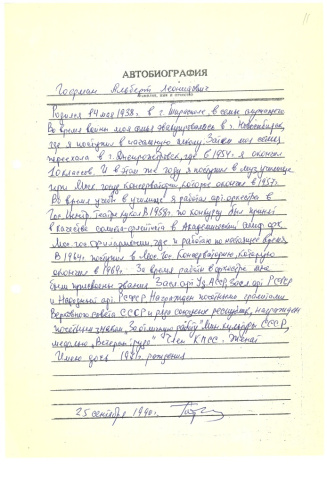 АВТОБИОГРАФИЯ
Гофман Альберт Леонидович
Родился 14 мая 1938. в г. в семье служащего
Во время войны моя семья эвакуировалась в г. Новосибирск,
где я поступил в начальную школу. Затем моя семья
переехала в г. Днепропетровск, где в 1954 г. я окончил
10 классов. И в этом же году я поступил в муз. училище
при Моск. госуд. Консерватории, которое окончил в 1957г.
Во время учебы в училище я работал арт. оркестра в
Гос. Центр. Театре кукол. В 1958г. по конкурсу был принят
в качестве солиста-флейтиста в Академический симф. орк.
Моск. гос. филармонии, где и работаю по настоящее время
В 1964г. поступил в Моск. Гос. Консерваторию, которую
окончил в 1969г. За время работы в оркестре мне
были присвоены звания Засл. арт. АССР, Засл. арт. РСФСР
и Народный арт. РСФСР. Награжден почетными грамотами
Верховного совета СССР и ряда союзных республик, награжден
почетным знаком „За отличную работу" Мин. культуры СССР,
медалью „Ветеран труда" Член КПСС. Женат
Имею дочь 1971г. рождения
25 сентября 1990г.